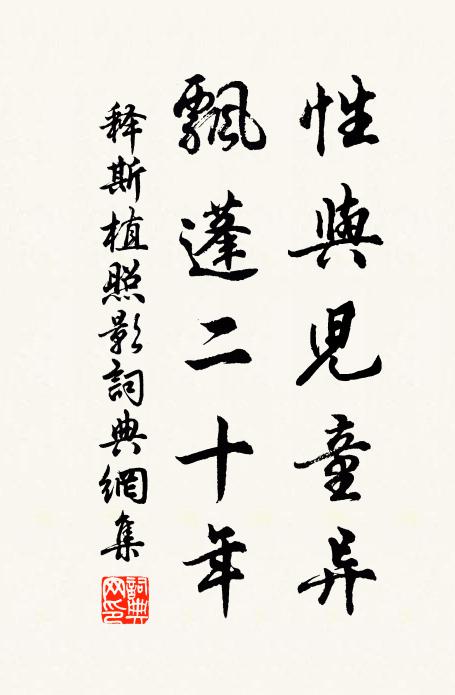 性與兒童异
飄蓬二十年
释斯植照影詞典網集
詞典网印